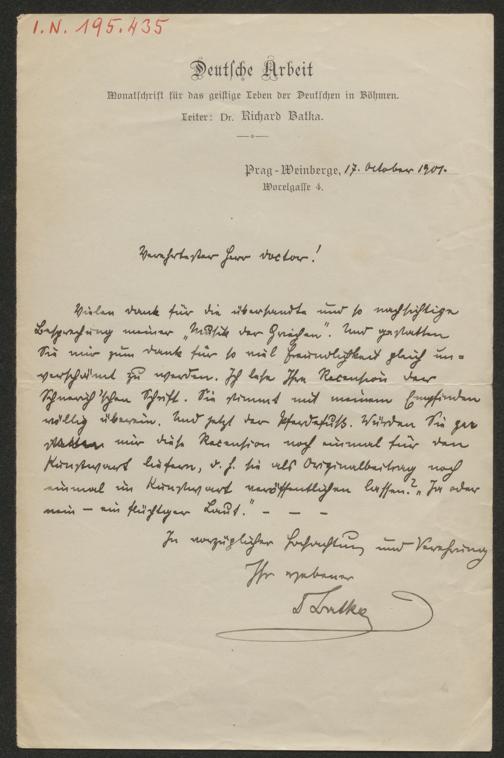 I.N. 195.435
Deutsche Arbeit
Monatschrift für das geistige Leben der Deutschen in Böhmen.
Leiter: Dr. Richard Batka.
Prag-Weinberge, 17. October 1901.
Wocelgasse 4.
Verehrtester Herr Doctor!
Vielen Dank für die übersandte und so nachsichtige
Besprechung meiner „Musik der Griechen". Und gestatten
Sie mir zum Dank für so viel Freundlichkeit gleich un-
verschämt zu werden. Ich lese Ihre Recension der
Schnerich'schen Schrift. Sie stimmt mit meinem Empfinden
völlig überein. Und jetzt der Pferdefuß. Würden Sie
mir diese Recension noch einmal für den
Kunstwart liefern, d. h. sie als Originalbeitrag noch
einmal im Kunstwart veröffentlichen lassen? „Ja oder
nein – ein flüchtiger Laut." – – –
In vorzüglicher Hochachtung und Verehrung
Ihr ergebener
Batka